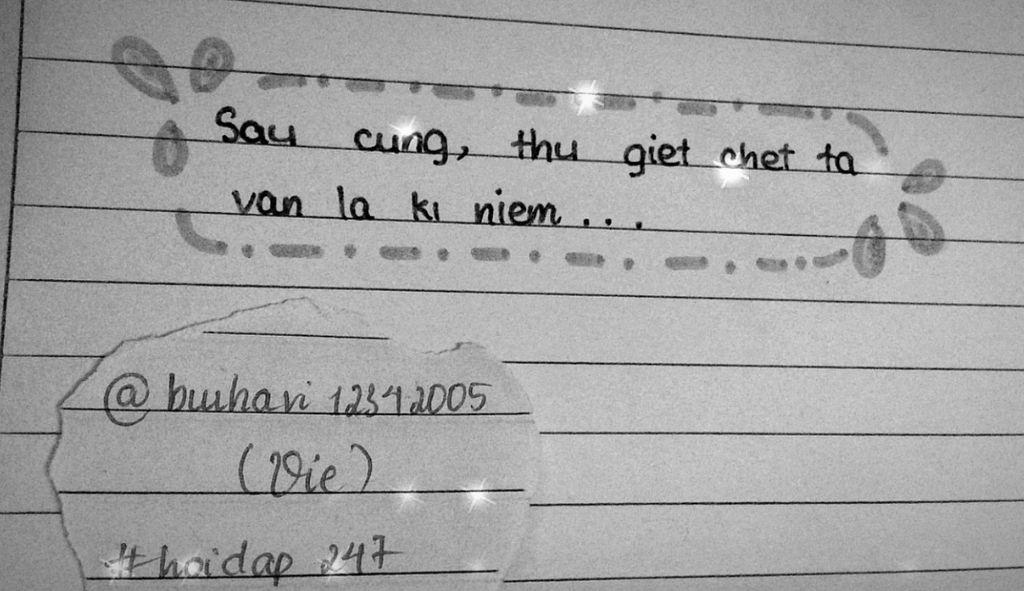 Sau cung, thu giet chet ta
van la kı niem...
@ buihavi 12342005
(Vie)
#hoidap 247